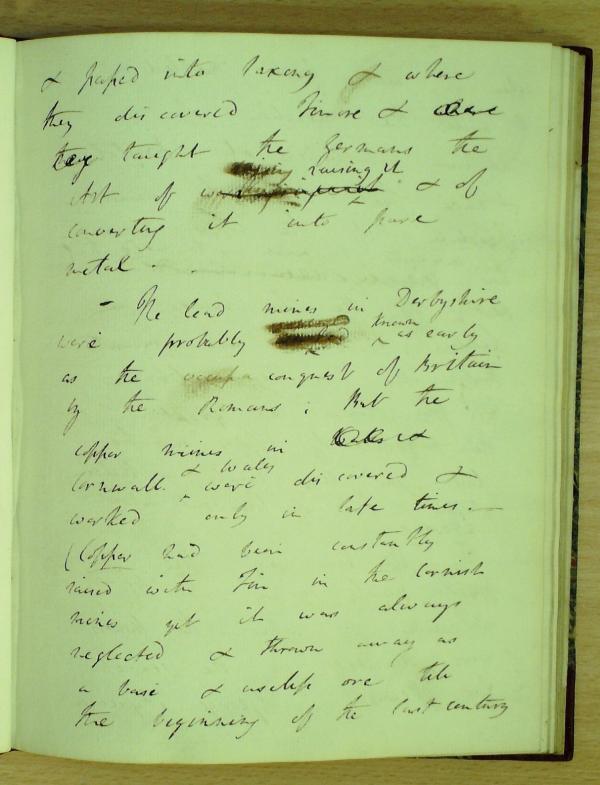 & passed into Saxony & where
they discovered Tin ore & where
they taught the Germans the
raising it
Art of working & of
converting it into pure
metal.
- The lead mines in Derbyshire
were probably known as early
as the conquest of Britain
by the Romans; But the
copper mines in
Cornwall & Wales were discovered &
worked only in late times. -
(Copper had been constantly
raised with Tin in the Cornish
mines yet it was always
neglected & thrown away as
a base & useless ore till
the beginning of the last century